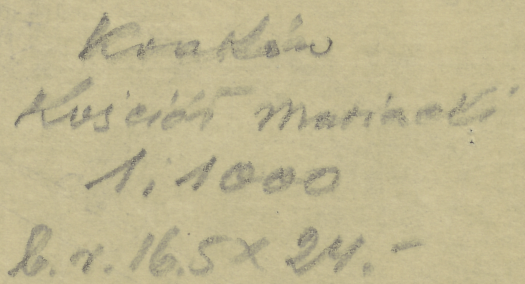 Kraków
Kościół Mariacki
1:1000
b.r. 16.5 x 24.-